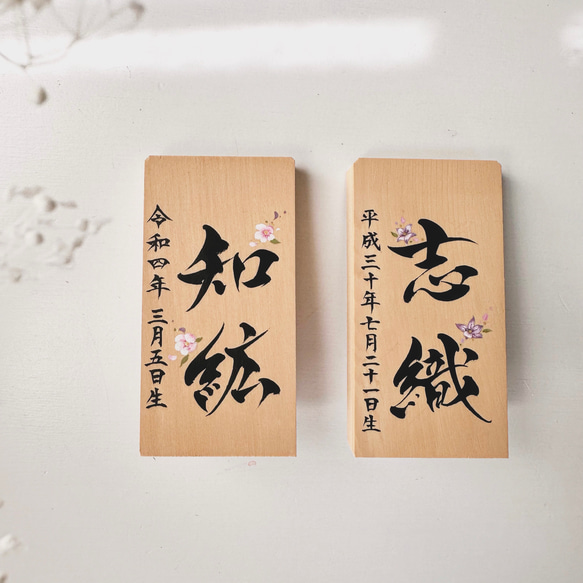 志織
平成三十年七月二十一日生
知紘
令和四年三月五日生